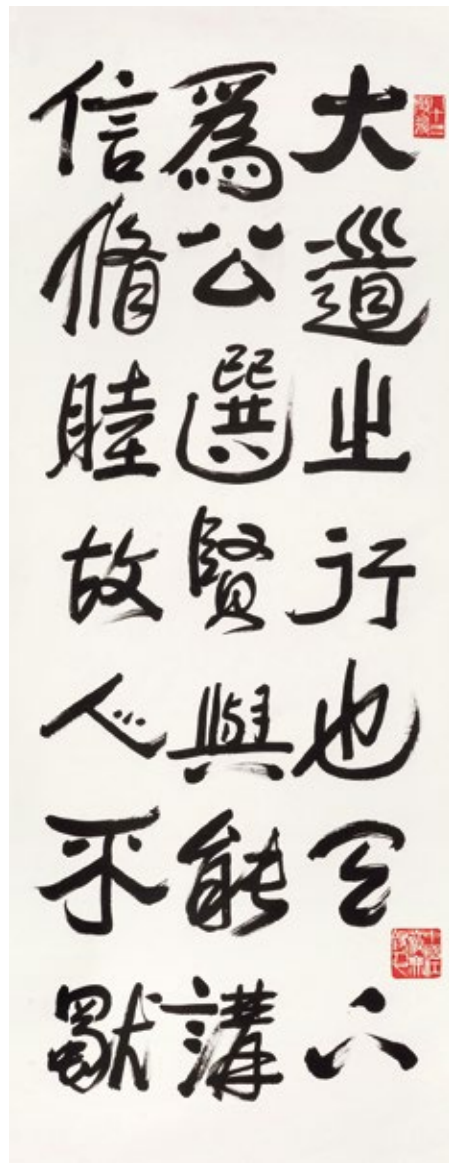 大道之行也天下
為公選賢與能講
信脩睦故人不獨